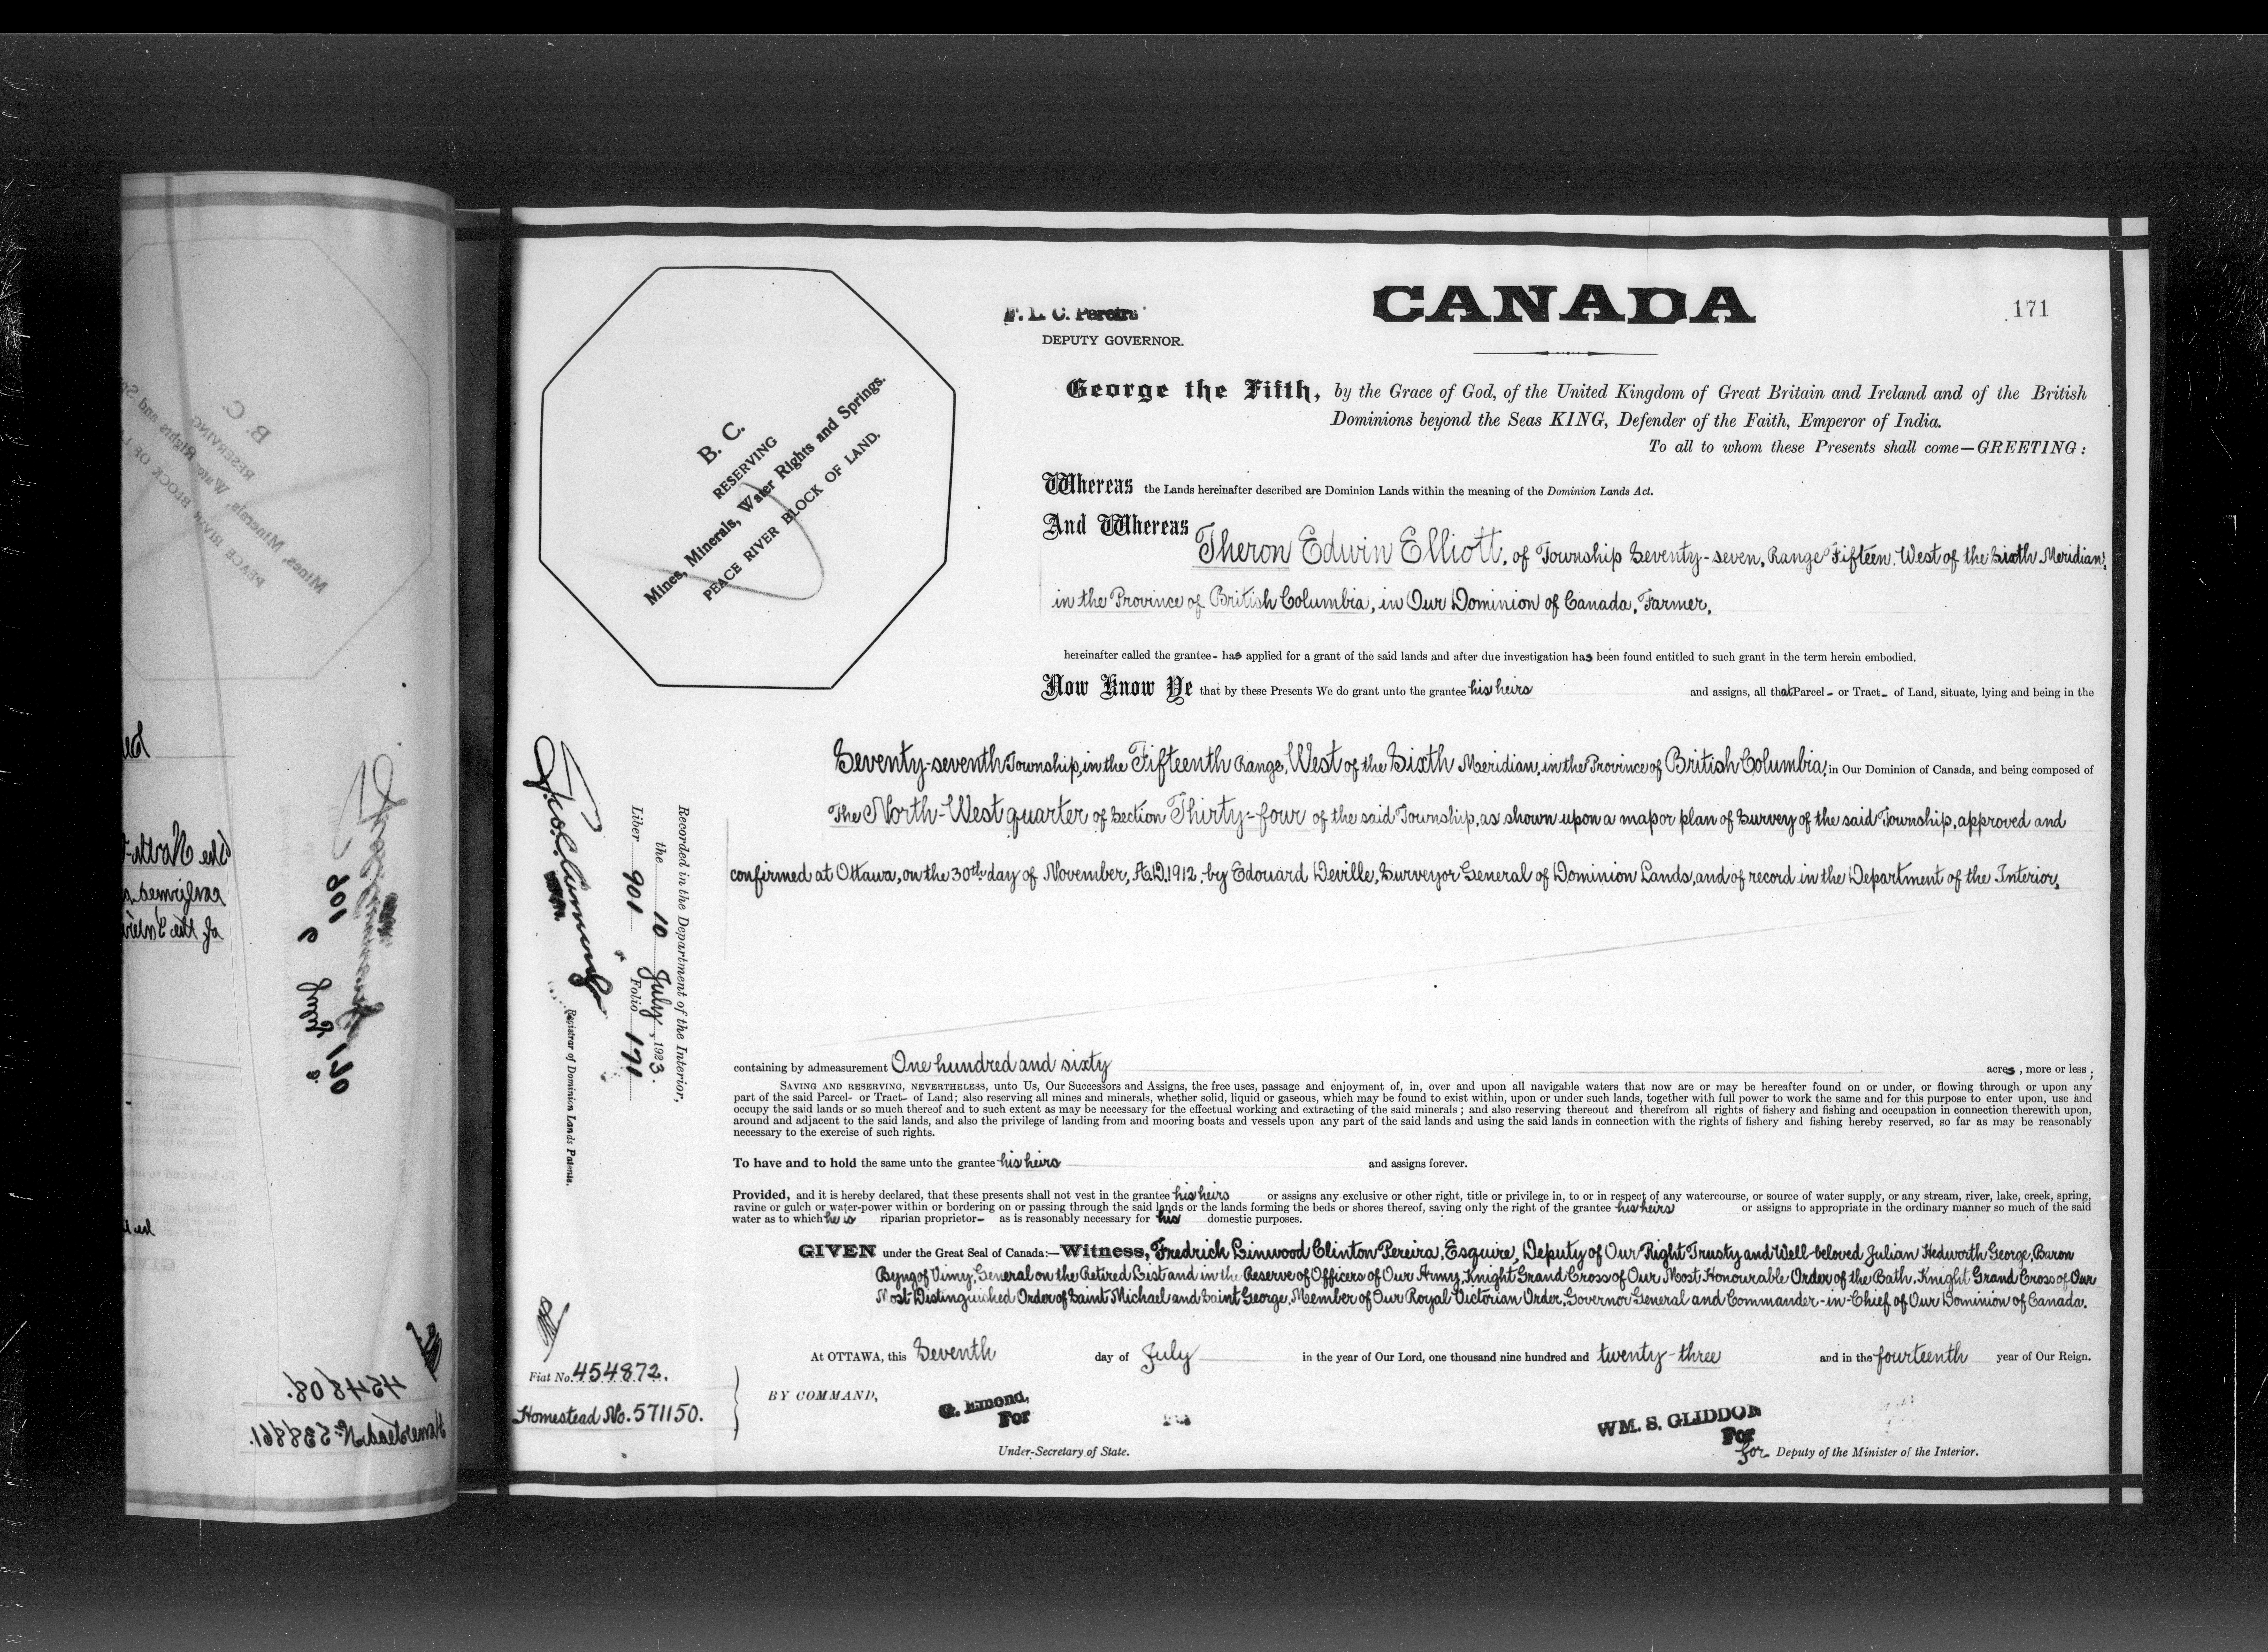 F. L. C. Pereira
DEPUTY GOVERNOR.
CANADA
171
George the Fifth, by the Grace of God, of the United Kingdom of Great Britain and Ireland and of the British
Dominions beyond the Seas KING, Defender of the Faith, Emperor of India.
To all to whom these Presents shall come—GREETING:
B. C.
RESERVING
Mines, Minerals, Water Rights and Springs.
PEACE RIVER BLOCK OF LAND.
Whereas the Lands hereinafter described are Dominion Lands within the meaning of the Dominion Lands Act.
And Whereas Theron Edwin Elliott, of Township Seventy-seven, Range Fifteen, West of the Sixth Meridian,
in the Province of British Columbia, in Our Dominion of Canada, Farmer,
hereinafter called the grantee- has applied for a grant of the said lands and after due investigation has been found entitled to such grant in the term herein embodied.
Now Know Ye that by these Presents We do grant unto the grantee his heirs and assigns, all that Parcel- or Tract- of Land, situate, lying and being in the
Seventy-seventh Township, in the Fifteenth Range, West of the Sixth Meridian, in the Province of British Columbia, in Our Dominion of Canada, and being composed of
The North-West quarter of Section Thirty-four of the said Township, as shown upon a map or plan of Survey of the said Township, approved and
confirmed at Ottawa, on the 30th day of November, A.D. 1912, by Edouard Deville, Surveyor General of Dominion Lands, and of record in the Department of the Interior,
containing by admeasurement One hundred and sixty acres, more or less;
SAVING AND RESERVING, NEVERTHELESS, unto Us, Our Successors and Assigns, the free uses, passage and enjoyment of, in, over and upon all navigable waters that now are or may be hereafter found on or under, or flowing through or upon any
part of the said Parcel- or Tract- of Land; also reserving all mines and minerals, whether solid, liquid or gaseous, which may be found to exist within, upon or under such lands, together with full power to work the same and for this purpose to enter upon, use and
occupy the said lands or so much thereof and to such extent as may be necessary for the effectual working and extracting of the said minerals; and also reserving thereout and therefrom all rights of fishery and fishing and occupation in connection therewith upon,
around and adjacent to the said lands, and also the privilege of landing from and mooring boats and vessels upon any part of the said lands and using the said lands in connection with the rights of fishery and fishing hereby reserved, so far as may be reasonably
necessary to the exercise of such rights.
To have and to hold the same unto the grantee his heirs and assigns forever.
Provided, and it is hereby declared, that these presents shall not vest in the grantee his heirs or assigns any exclusive or other right, title or privilege in, to or in respect of any watercourse, or source of water supply, or any stream, river, lake, creek, spring,
ravine or gulch or water-power within or bordering on or passing through the said lands or the lands forming the beds or shores thereof, saving only the right of the grantee his heirs or assigns to appropriate in the ordinary manner so much of the said
water as to which he is riparian proprietor- as is reasonably necessary for his domestic purposes.
GIVEN under the Great Seal of Canada:—Witness, Fredrick Linwood Clinton Pereira, Esquire, Deputy of Our Right Trusty and Well-beloved Julian Hedworth George, Baron
Byng of Vimy, General on the Retired List and in the Reserve of Officers of Our Army, Knight Grand Cross of Our Most Honourable Order of the Bath, Knight Grand Cross of Our
Most Distinguished Order of Saint Michael and Saint George, Member of Our Royal Victorian Order, Governor General and Commander-in-Chief of Our Dominion of Canada.
At OTTAWA, this Seventh day of July in the year of Our Lord, one thousand nine hundred and twenty-three and in the fourteenth year of Our Reign.
BY COMMAND,
G. Emond,
For
Under-Secretary of State.
WM. S. GLIDDON
For
for Deputy of the Minister of the Interior.
Recorded in the Department of the Interior,
the 10 July, 1923.
Liber 901 Folio 171
Registrar of Dominion Lands Patents.
Fiat No. 454872.
Homestead No. 571150.
454808.
Homestead No. 538861.